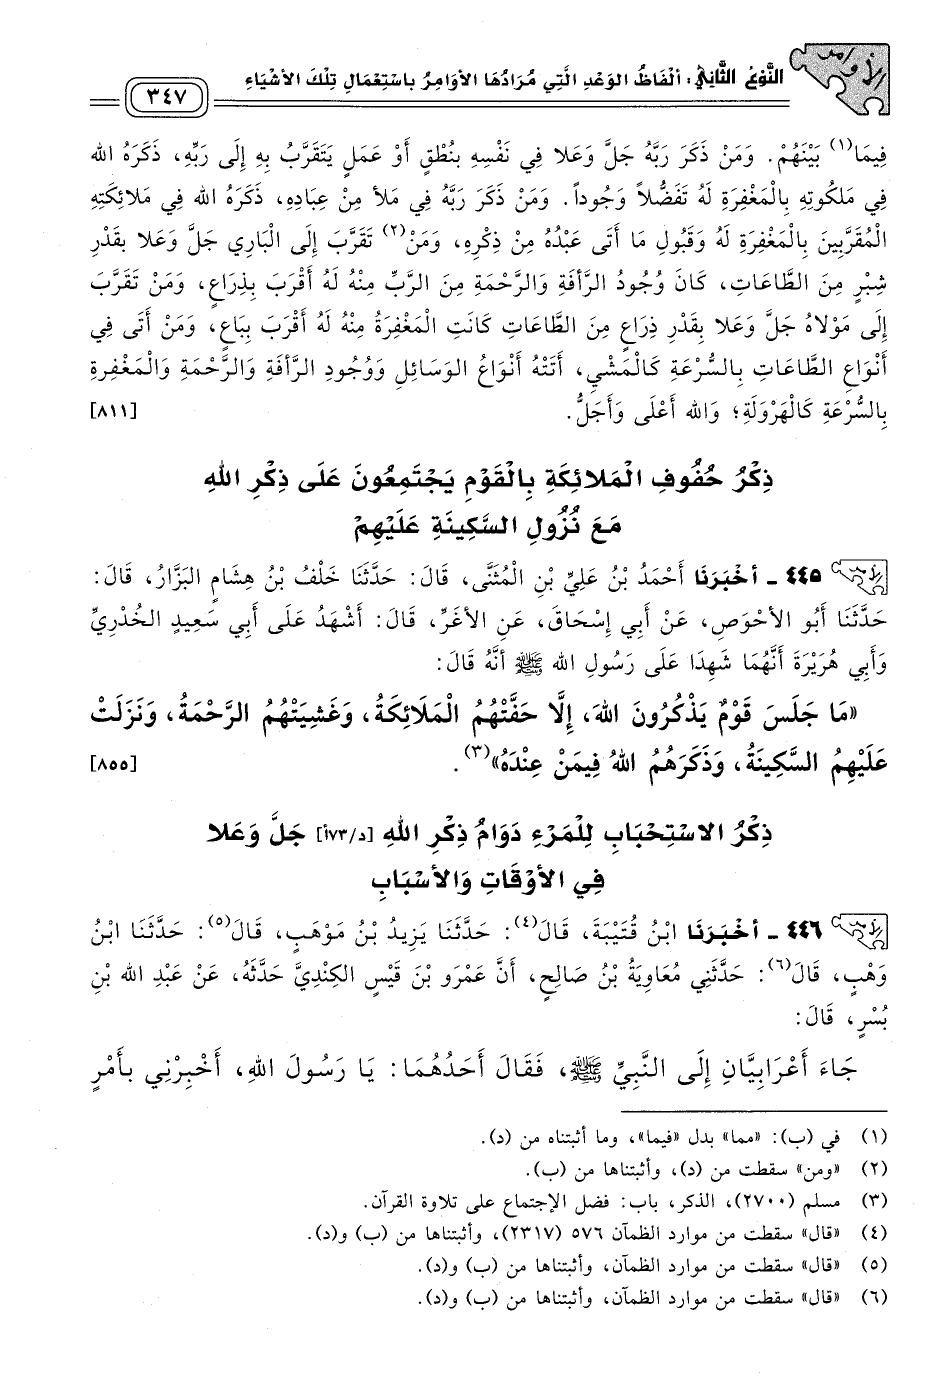 الأوامر
النَّوْعُ الثَّانِي: أَلْفَاظُ الوَعْدِ الَّتِي مُرَادُهَا الأَوَامِرُ بِاسْتِعْمَالِ تِلْكَ الأَشْيَاءِ
٣٤٧
فِيمَا(١) بَيْنَهُمْ. وَمَنْ ذَكَرَ رَبَّهُ جَلَّ وَعَلا فِي نَفْسِهِ بِنُطْقٍ أَوْ عَمَلٍ يَتَقَرَّبُ بِهِ إِلَى رَبِّهِ، ذَكَرَهُ الله
فِي مَلَكُوتِهِ بِالْمَغْفِرَةِ لَهُ تَفَضُّلاً وَجُوداً. وَمَنْ ذَكَرَ رَبَّهُ فِي مَلأ مِنْ عِبَادِهِ، ذَكَرَهُ الله فِي مَلائِكَتِهِ
الْمُقَرَّبِينَ بِالْمَغْفِرَةِ لَهُ وَقَبُولِ مَا أَتَى عَبْدُهُ مِنْ ذِكْرِهِ، وَمَنْ(٢) تَقَرَّبَ إِلَى الْبَارِي جَلَّ وَعَلا بِقَدْرِ
شِبْرٍ مِنَ الطَّاعَاتِ، كَانَ وُجُودُ الرَّأفَةِ وَالرَّحْمَةِ مِنَ الرَّبِّ مِنْهُ لَهُ أَقْرَبَ بِذِرَاعٍ، وَمَنْ تَقَرَّبَ
إِلَى مَوْلاهُ جَلَّ وَعَلا بِقَدْرِ ذِرَاعٍ مِنَ الطَّاعَاتِ كَانَتِ الْمَغْفِرَةُ مِنْهُ لَهُ أَقْرَبَ بِبَاعٍ، وَمَنْ أَتَى فِي
أَنْوَاعِ الطَّاعَاتِ بِالسُّرْعَةِ كَالْمَشْيِ، أَتَتْهُ أَنْوَاعُ الوَسَائِلِ وَوُجُودِ الرَّأفَةِ وَالرَّحْمَةِ وَالْمَغْفِرَةِ
بِالسُّرْعَةِ كَالْهَرْوَلَةِ؛ وَالله أَعْلَى وَأَجَلُّ. [٨١١]
ذِكْرُ حُفُوفِ الْمَلائِكَةِ بِالْقَوْمِ يَجْتَمِعُونَ عَلَى ذِكْرِ اللهِ
مَعَ نُزُولِ السَّكِينَةِ عَلَيْهِمْ
٤٤٥ - أَخْبَرَنَا أَحْمَدُ بْنُ عَلِيِّ بْنِ الْمُثَنَّى، قَالَ: حَدَّثَنَا خَلْفُ بْنُ هِشَامٍ البَزَّارُ، قَالَ:
حَدَّثَنَا أَبُو الأَحْوَصِ، عَنْ أَبِي إِسْحَاقَ، عَنِ الأَغَرِّ، قَالَ: أَشْهَدُ عَلَى أَبِي سَعِيدٍ الخُدْرِيِّ
وَأَبِي هُرَيْرَةَ أَنَّهُمَا شَهِدَا عَلَى رَسُولِ الله ﷺ أَنَّهُ قَالَ:
«مَا جَلَسَ قَوْمٌ يَذْكُرُونَ اللهَ، إِلَّا حَفَّتْهُمُ الْمَلَائِكَةُ، وَغَشِيَتْهُمُ الرَّحْمَةُ، وَنَزَلَتْ
عَلَيْهِمُ السَّكِينَةُ، وَذَكَرَهُمُ اللهُ فِيمَنْ عِنْدَهُ»(٣). [٨٥٥]
ذِكْرُ الاسْتِحْبَابِ لِلْمَرْءِ دَوَامُ ذِكْرِ اللهِ [د/١٧٣أ] جَلَّ وَعَلا
فِي الأَوْقَاتِ وَالأَسْبَابِ
٤٤٦ - أَخْبَرَنَا ابْنُ قُتَيْبَةَ، قَالَ(٤): حَدَّثَنَا يَزِيدُ بْنُ مَوْهَبٍ، قَالَ(٥): حَدَّثَنَا ابْنُ
وَهْبٍ، قَالَ(٦): حَدَّثَنِي مُعَاوِيَةُ بْنُ صَالِحٍ، أَنَّ عَمْرَو بْنَ قَيْسٍ الكِنْدِيَّ حَدَّثَهُ، عَنْ عَبْدِ الله بْنِ
بُسْرٍ، قَالَ:
جَاءَ أَعْرَابِيَّانِ إِلَى النَّبِيِّ ﷺ، فَقَالَ أَحَدُهُمَا: يَا رَسُولَ اللهِ، أَخْبِرْنِي بِأَمْرٍ
(١) في (ب): «مما» بدل «فيما»، وما أثبتناه من (د).
(٢) «ومن» سقطت من (د)، وأثبتناها من (ب).
(٣) مسلم (٢٧٠٠)، الذكر، باب: فضل الإجتماع على تلاوة القرآن.
(٤) «قال» سقطت من موارد الظمآن ٥٧٦ (٢٣١٧)، وأثبتناها من (ب) و(د).
(٥) «قال» سقطت من موارد الظمآن، وأثبتناها من (ب) و(د).
(٦) «قال» سقطت من موارد الظمآن، وأثبتناها من (ب) و(د).